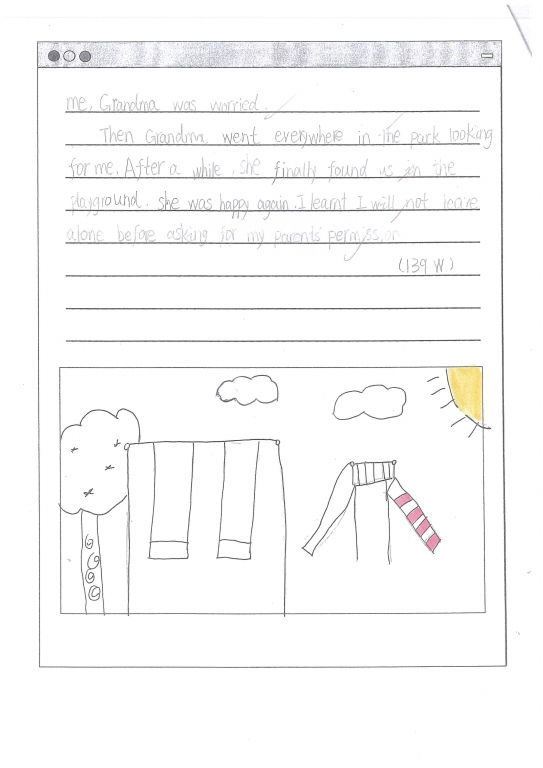 me, Grandma was worried.
Then Grandma went everywhere in the park looking
for me. After a while, she finally found us in the
playground. She was happy again. I learnt I will not leave
alone before asking for my parents' permission
(139 W)